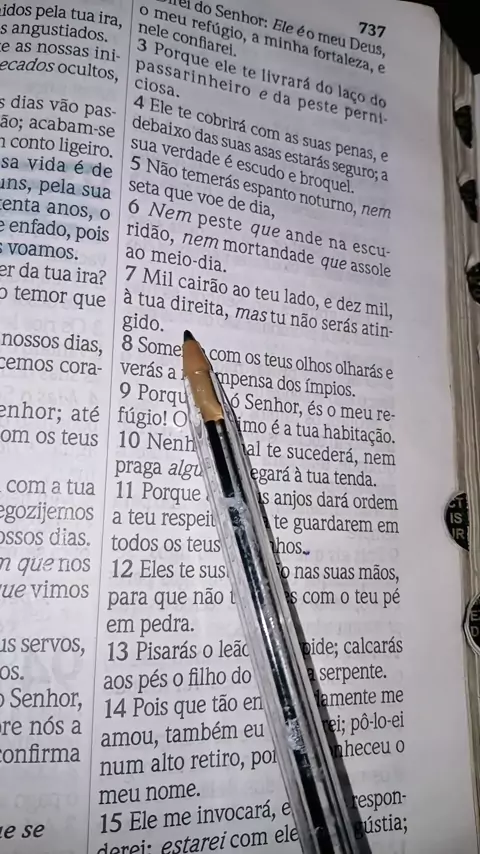 idos pela tua ira,
s angustiados.
te as nossas ini-
ecados ocultos,
s dias vão pas-
ão; acabam-se
conto ligeiro.
sa vida é de
uns, pela sua
tenta anos, o
e enfado, pois
voamos.
er da tua ira?
o temor que
nossos dias,
cemos cora-
enhor; até
om os teus
com a tua
egozijemos
ossos dias.
m que nos
que vimos
us servos,
os.
o Senhor,
re nós a
confirma
ue se
737
do Senhor: Ele é o meu Deus,
o meu refúgio, a minha fortaleza, e
nele confiarei.
3 Porque ele te livrará do laço do
passarinheiro e da peste perni-
ciosa.
4 Ele te cobrirá com as suas penas, e
debaixo das suas asas estarás seguro; a
sua verdade é escudo e broquel.
5 Não temerás espanto noturno, nem
seta que voe de dia,
6 Nem peste que ande na escu-
ridão, nem mortandade que assole
ao meio-dia.
7 Mil cairão ao teu lado, e dez mil,
à tua direita, mas tu não serás atin-
gido.
8 Some com os teus olhos olharás e
verás a mpensa dos ímpios.
9 Porqu ó Senhor, és o meu re-
fúgio! O imo é a tua habitação.
10 Nenh al te sucederá, nem
praga algu egará à tua tenda.
11 Porque s anjos dará ordem
a teu respeit te guardarem em
todos os teus nhos.
12 Eles te sus o nas suas mãos,
para que não t s com o teu pé
em pedra.
13 Pisarás o leão pide; calcarás
aos pés o filho do a serpente.
14 Pois que tão en damente me
amou, também eu rei; pô-lo-ei
num alto retiro, por nheceu o
meu nome.
15 Ele me invocará, e respon-
derei; estarei com ele gústia;
CT
IS
JR